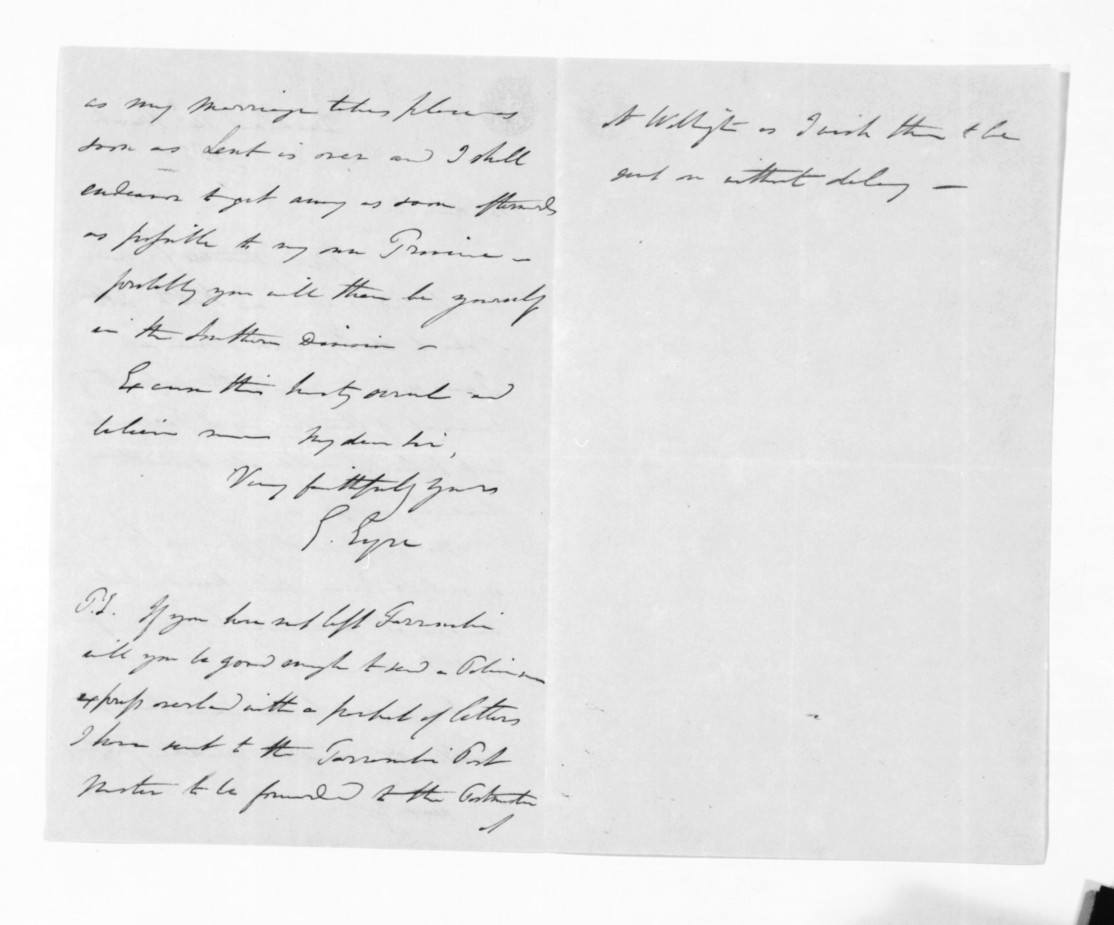 as my marriage takes place as
soon as Lent is over and I shall
endeavor to get away as soon afterwards
as possible to my own Province —
probably you will then be yourself
in the Southern Division —
Excuse this hasty scrawl and
believe me My dear Sir,
Very faithfully yours
E. Eyre
P.S. If you have not left Taranaki
will you be good enough to send a Policeman
express overland with a packet of letters
I have sent to the Taranaki Post
Master to be forwarded to the Postmaster
at
At Wellington as I wish them to be
sent on without delay —